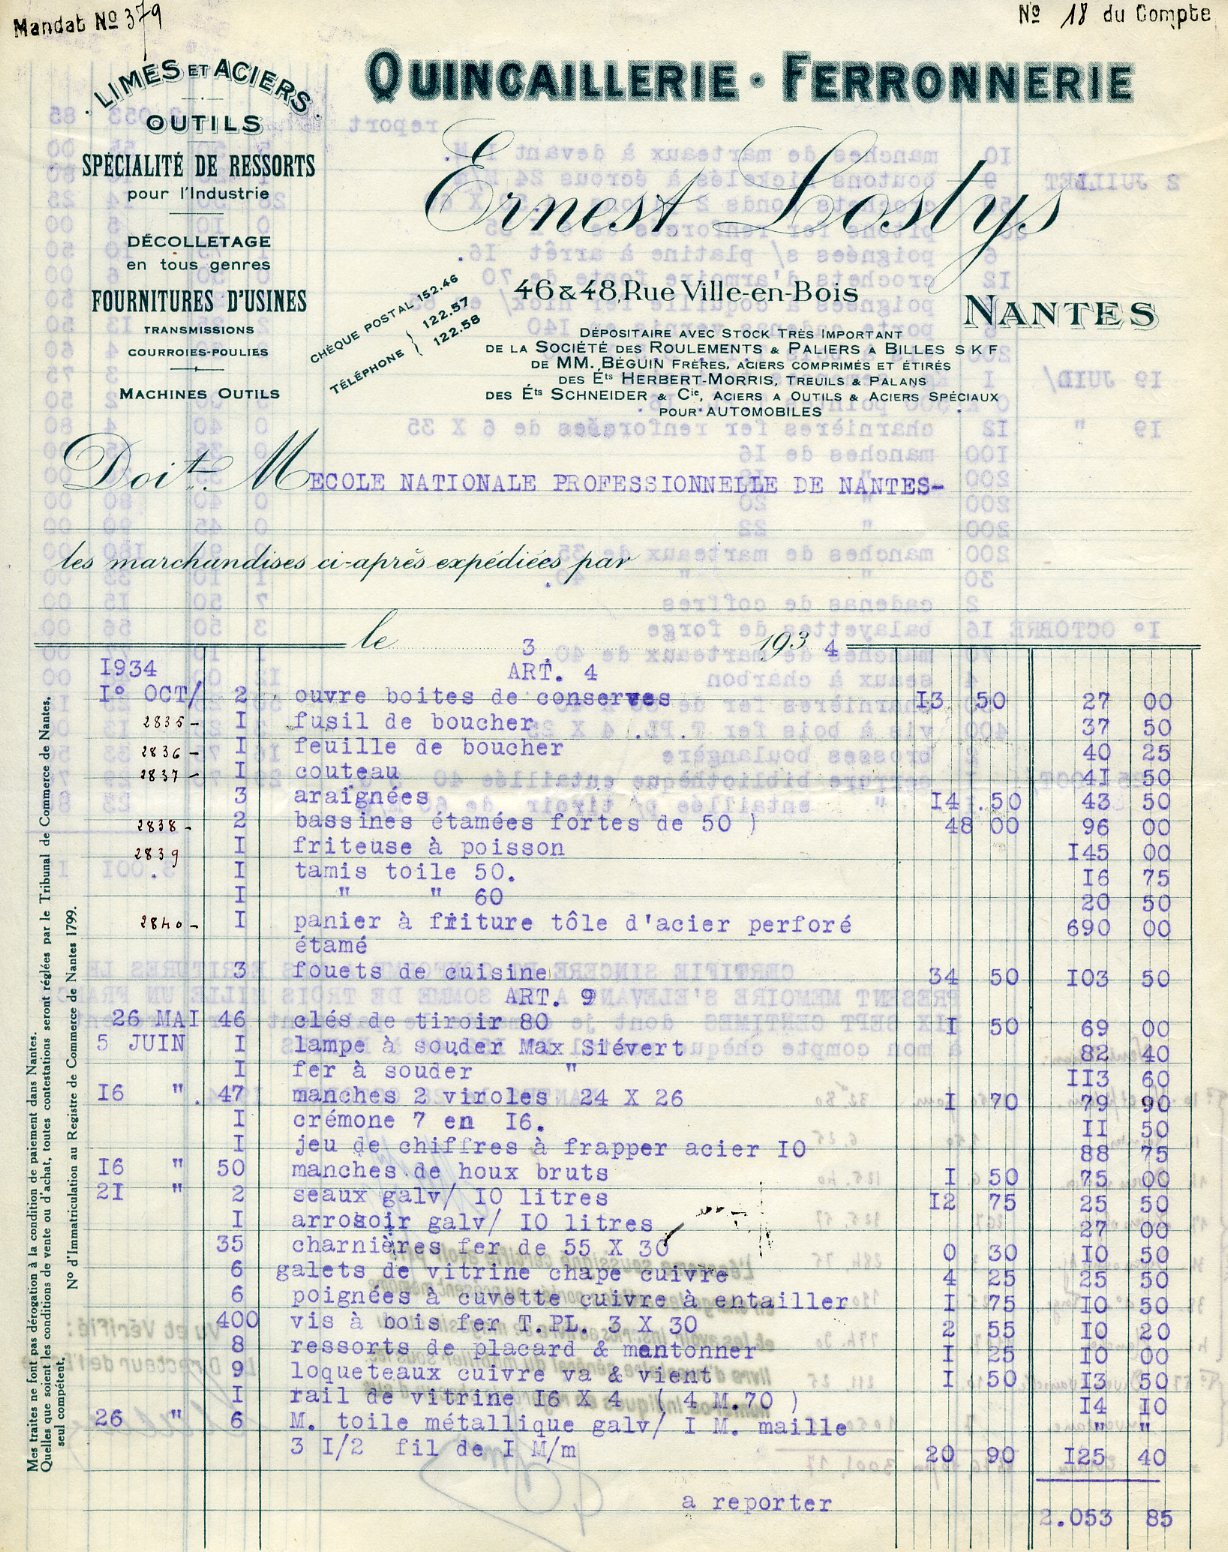 Mandat Nº 379
Nº 18 du Compte
LIMES ET ACIERS
OUTILS
SPÉCIALITÉ DE RESSORTS
pour l'Industrie
DÉCOLLETAGE
en tous genres
FOURNITURES D'USINES
TRANSMISSIONS
COURROIES-POULIES
MACHINES OUTILS
QUINCAILLERIE · FERRONNERIE
Ernest Lostys
46 & 48, Rue Ville-en-Bois
NANTES
CHÈQUE POSTAL 152.46
TÉLÉPHONE { 122.57
122.58
DÉPOSITAIRE AVEC STOCK TRÈS IMPORTANT
DE LA SOCIÉTÉ DES ROULEMENTS & PALIERS A BILLES S K F
DE MM. BÉGUIN FRÈRES, ACIERS COMPRIMÉS ET ÉTIRÉS
DES Éts HERBERT-MORRIS, TREUILS & PALANS
DES Éts SCHNEIDER & Cie, ACIERS A OUTILS & ACIERS SPÉCIAUX
POUR AUTOMOBILES
Doit M ECOLE NATIONALE PROFESSIONNELLE DE NANTES-
les marchandises ci-après expédiées par
le 3. 193 4
1934 ART. 4
I° OCT/ 2 ouvre boites de conserves I3 50 27 00
2835- I fusil de boucher 37 50
2836- I feuille de boucher 40 25
2837- I couteau 4I 50
3 araignées I4 .50 43 50
2838- 2 bassines étamées fortes de 50 ) 48 00 96 00
2839 I friteuse à poisson I45 00
I tamis toile 50. I6 75
I " " 60 20 50
2840- I panier à friture tôle d'acier perforé 690 00
étamé
3 fouets de cuisine 34 50 I03 50
ART. 9
26 MAI 46 clés de tiroir 80 I 50 69 00
5 JUIN I lampe à souder Max Siévert 82 40
I fer à souder " II3 60
I6 " . 47 manches 2 viroles 24 X 26 I 70 79 90
I crémone 7 en I6. II 50
I jeu de chiffres à frapper acier I0 88 75
I6 " 50 manches de houx bruts I 50 75 00
2I " 2 seaux galv/ I0 litres I2 75 25 50
I arrosoir galv/ I0 litres 27 00
35 charnières fer de 55 X 30 0 30 I0 50
6 galets de vitrine chape cuivre 4 25 25 50
6 poignées à cuvette cuivre à entailler I 75 I0 50
400 vis à bois fer T.PL. 3 X 30 2 55 I0 20
8 ressorts de placard & mentonner I 25 I0 00
9 loqueteaux cuivre va & vient I 50 I3 50
I rail de vitrine I6 X 4 ( 4 M.70 ) I4 I0
26 " 6 M. toile métallique galv/ I M. maille " "
3 I/2 fil de I M/m 20 90 I25 40
a reporter 2.053 85
Mes traites ne font pas dérogation à la condition de paiement dans Nantes.
Quelles que soient les conditions de vente ou d'achat, toutes contestations seront réglées par le Tribunal de Commerce de Nantes,
seul compétent.
Nº d'Immatriculation au Registre de Commerce de Nantes 1799.